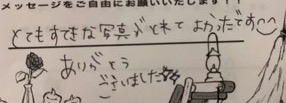 メッセージをご自由にお願いいたします!!
とてもすてきな写真がとれてよかったです
ありがとう
ございました